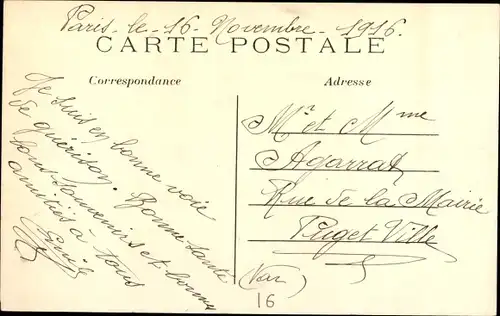 Paris le 16 Novembre 1916.
CARTE POSTALE
Correspondance
Adresse
Je suis en bonne voie
de guérison. Bonne santé
bons souvenirs et bonnes
amitiés à tous
Mr et Mme
Agarrat
Rue de la Mairie
Puget Ville
(Var)
16